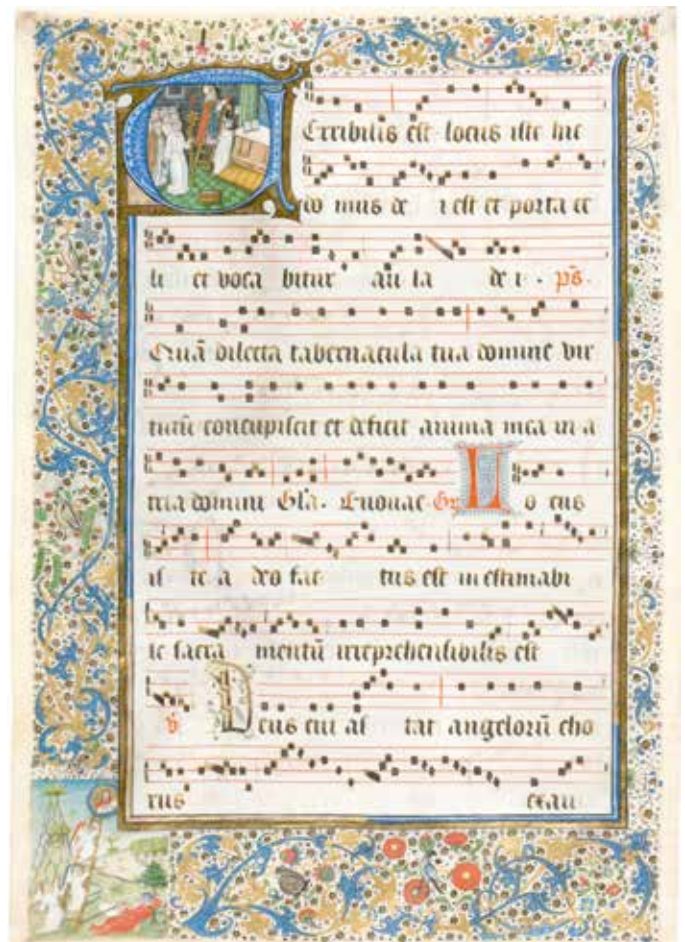 Terribilis est locus iste hic
do mus de i est et porta ce
li et voca bitur au la de i . ps̄.
Quā dilecta tabernacula tua domine vir
tutū concupiscit et deficit anima mea in a
tria domini Gla. Euouae Gr̄ L o cus
is te a deo fac tus est inestimabi
le sacra mentū irreprehensibilis est
v̄ Deus cui as tat angelorū cho
rus exau